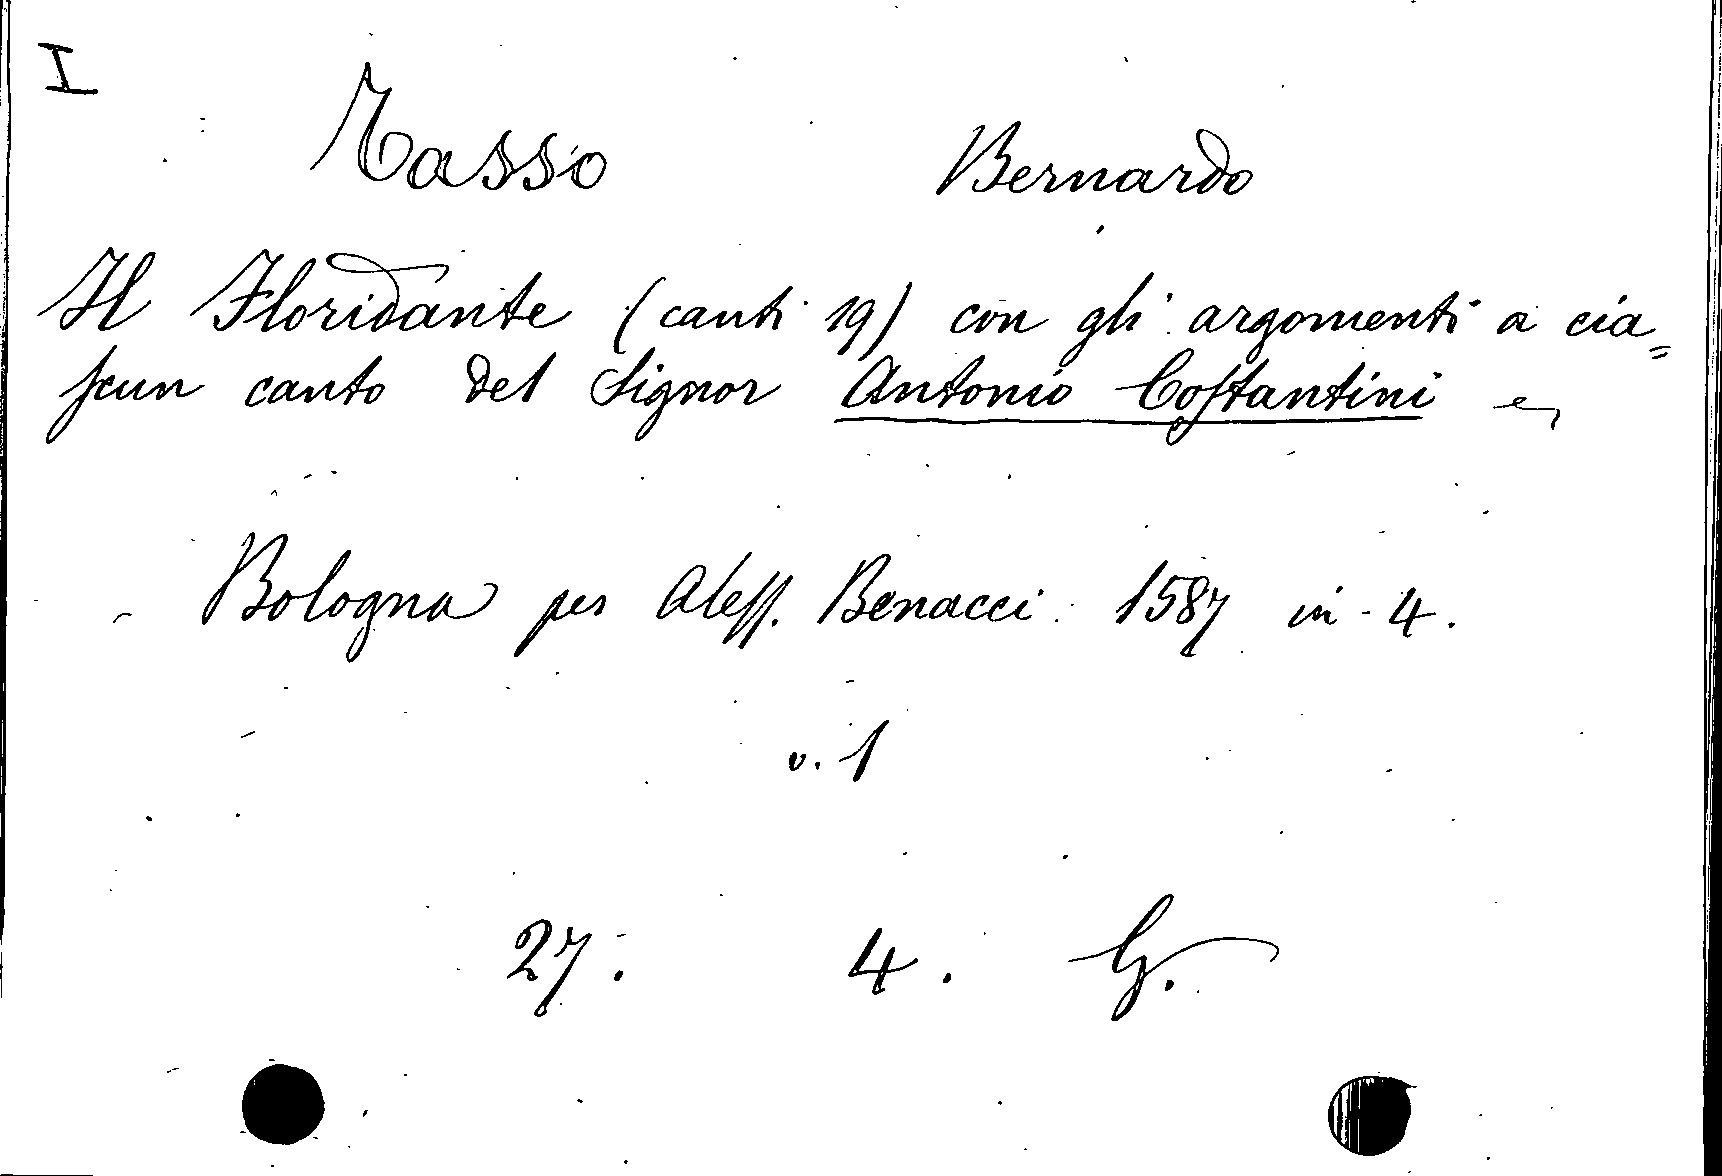 I
Tasso Bernardo
Il Floridante (canti 19) con gli argomenti a cia=
ſcun canto del Signor Antonio Coſtantini e,
Bologna per Aleſſ. Benacci 1587 in-4.
v. 1
27. 4. G.